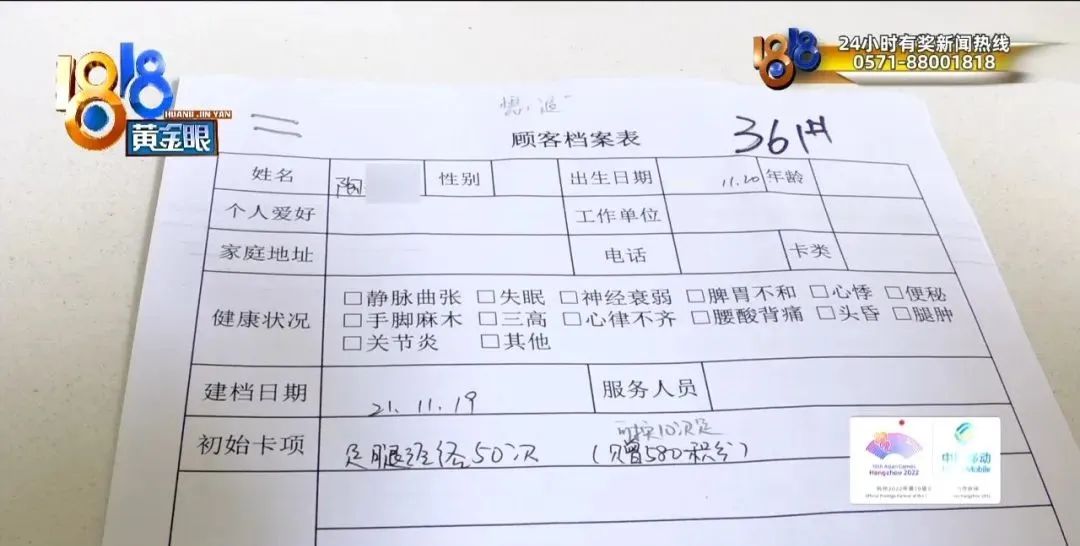 1818
HUANG JIN YAN
黄金眼
1818
24小时有奖新闻热线
0571-88001818
顾客档案表
361#
姓名 陶 性别 出生日期 11.20 年龄
个人爱好 工作单位
家庭地址 电话 卡类
健康状况
□静脉曲张 □失眠 □神经衰弱 □脾胃不和 □心悸 □便秘
□手脚麻木 □三高 □心律不齐 □腰酸背痛 □头昏 □腿肿
□关节炎 □其他
建档日期 21.11.19 服务人员
初始卡项 足腿经络50次 (赠580积分)
19th Asian Games
Hangzhou 2022
中国移动
China Mobile